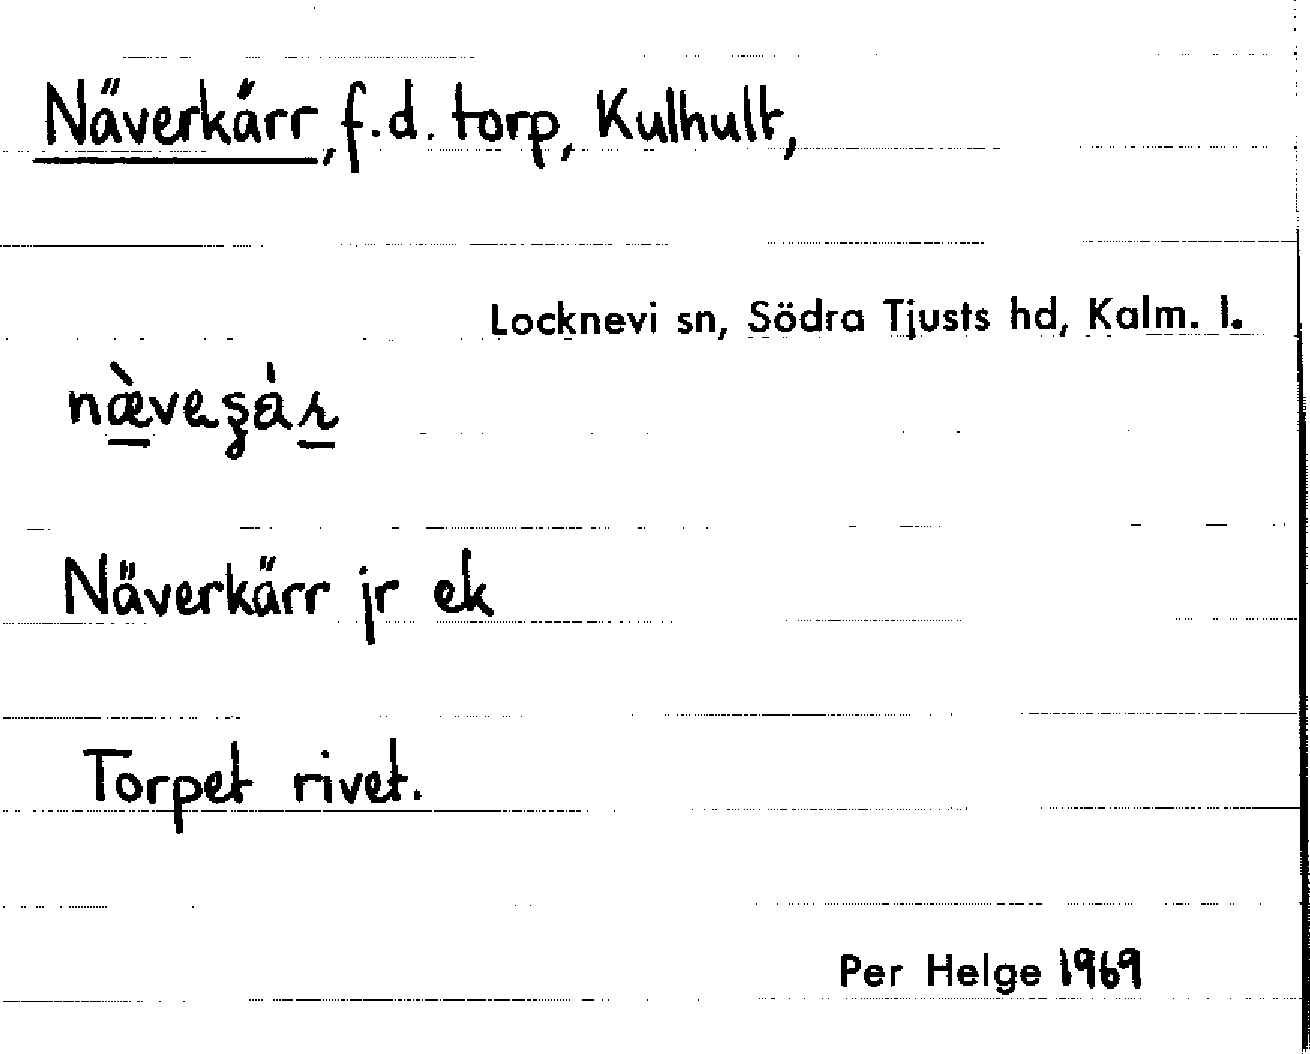 Näverkärr, f.d. torp, Kulhult,
Locknevi sn, Södra Tjusts hd, Kalm. l.
Näverkärr jr ek
Torpet rivet.
Per Helge 1969